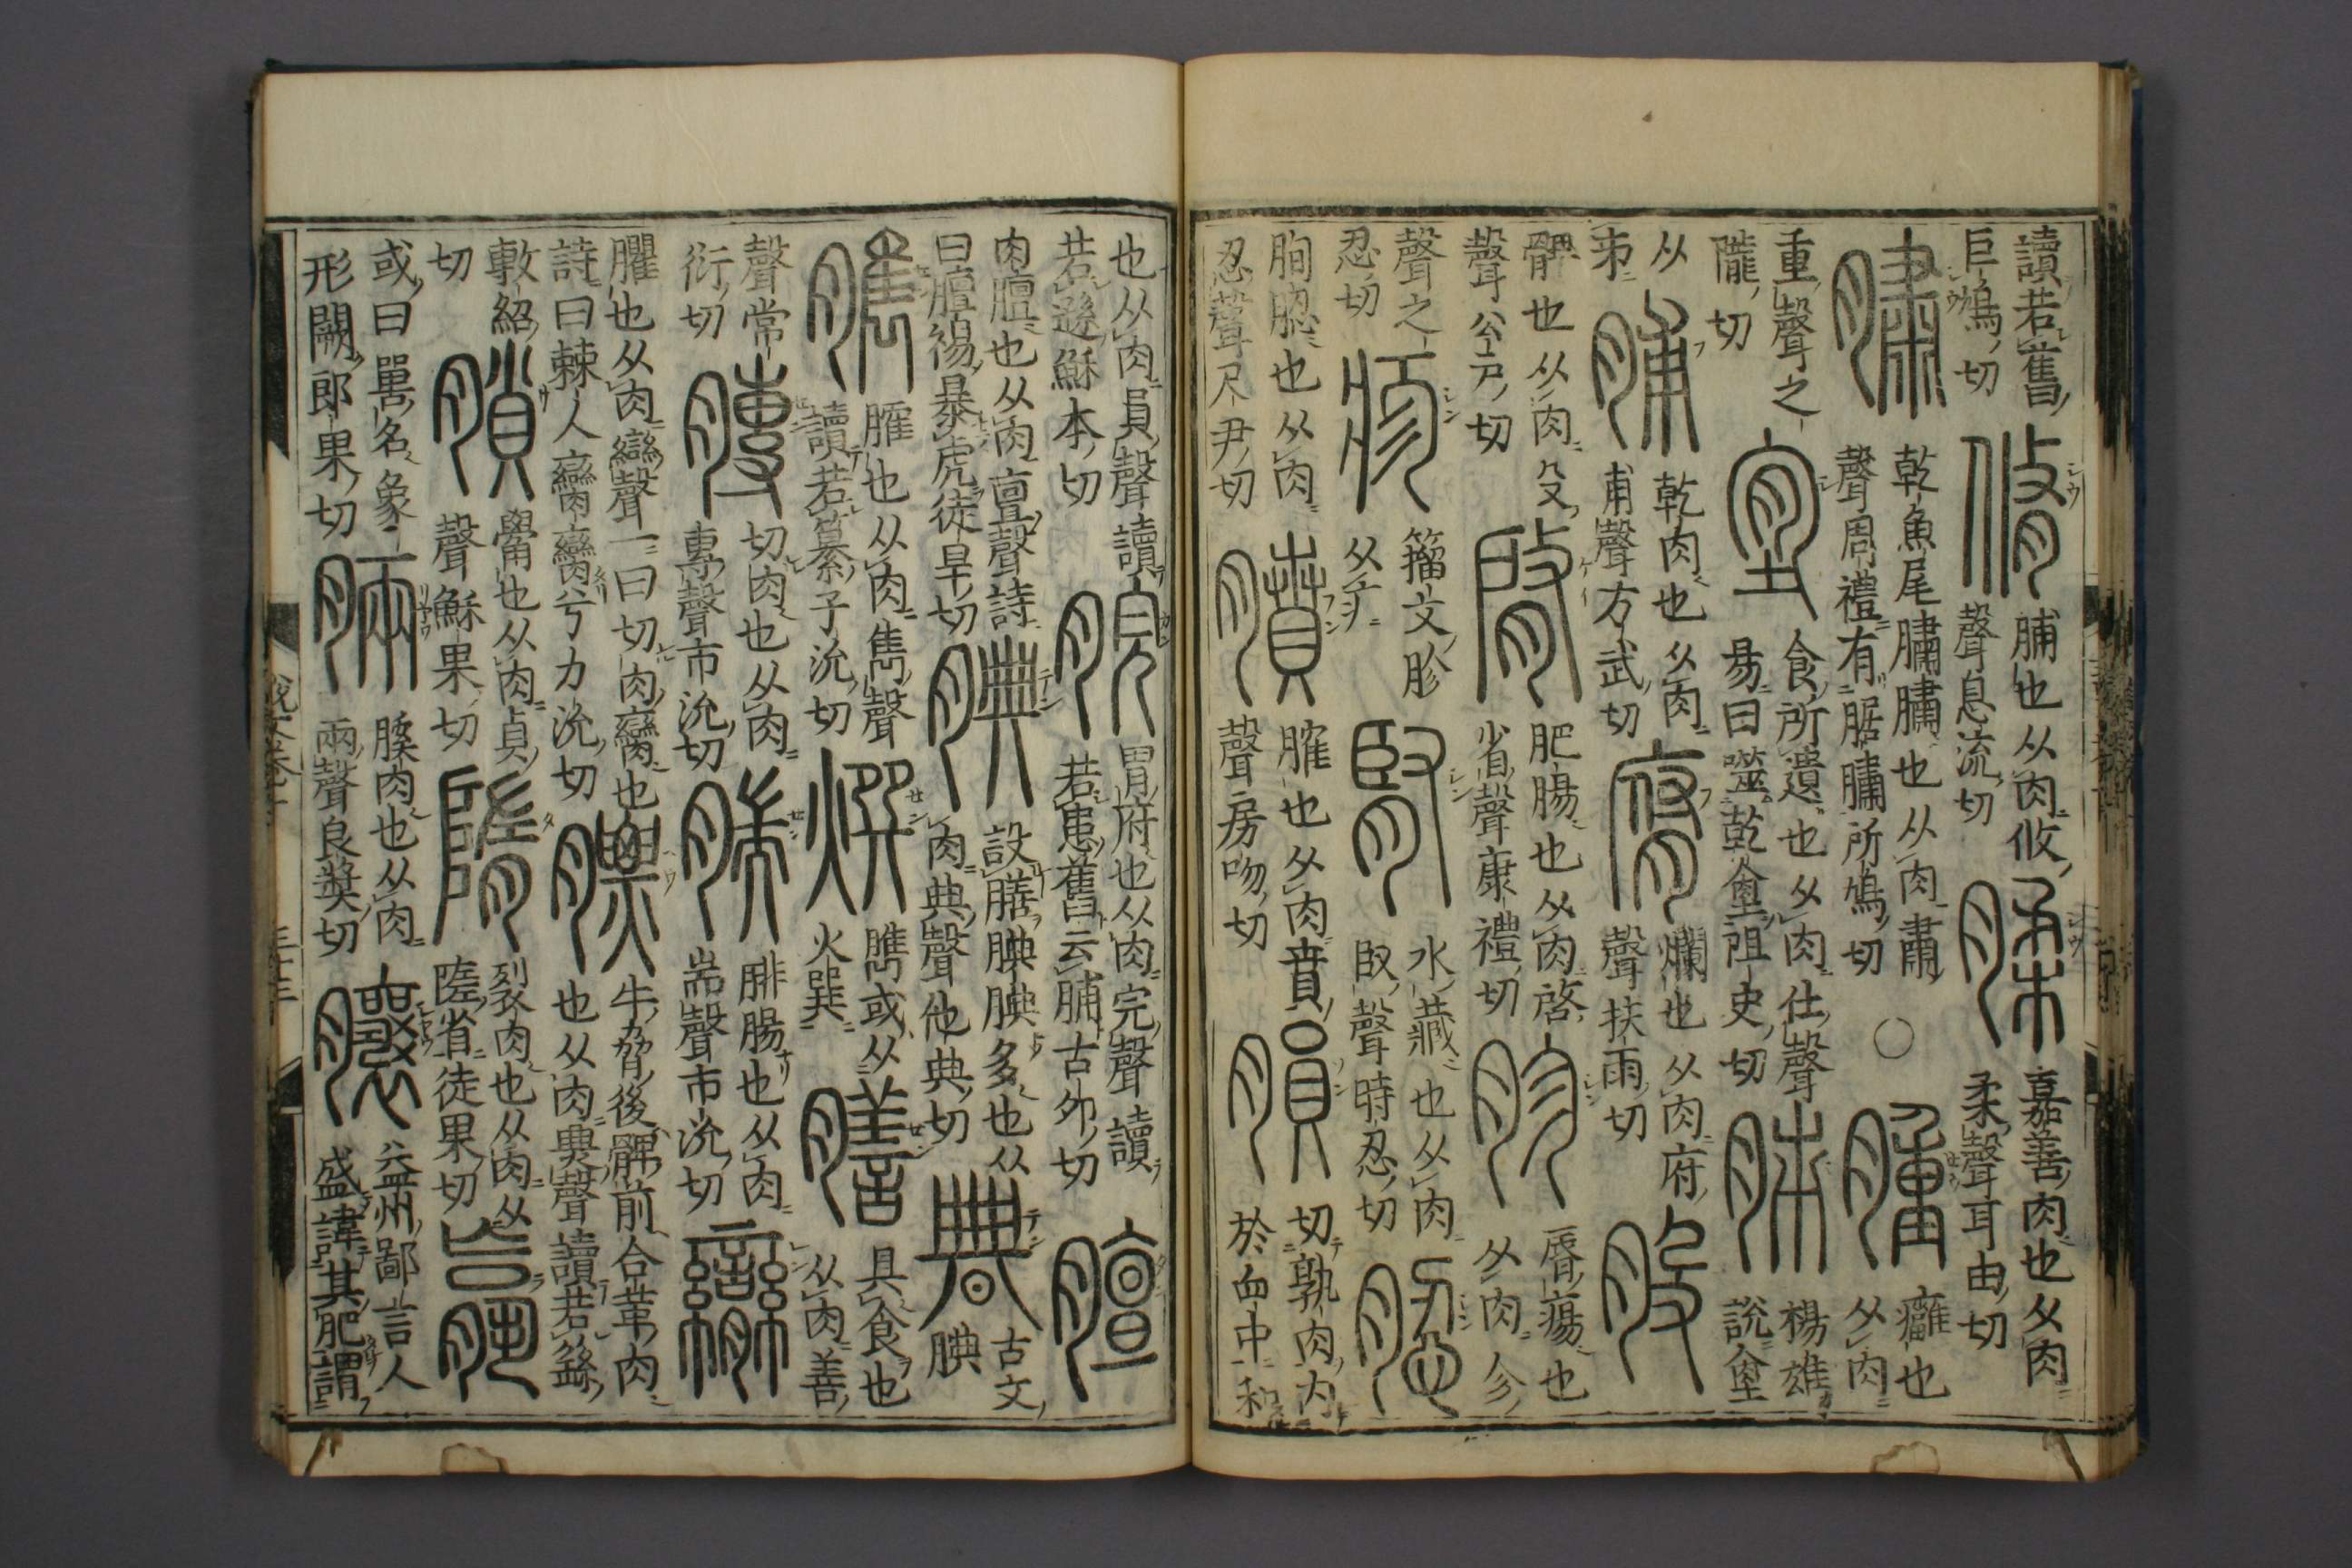 讀若舊
巨鳩切
脩
脯也从肉攸
聲息流切
腬
嘉善肉也从肉
柔聲耳由切
膴
乾魚尾臐臐也从肉肅
聲周禮有腒臐所鳩切
○
腫
癰也
从肉
重聲之
隴切
𦞤
食所遺也从肉仕聲
易曰噬乾𦞤阻史切
胏
楊雄
說𦞤
从
𠂔
脯
乾肉也从肉
甫聲方武切
腐
爛也从肉府
聲扶雨切
股
髀也从肉殳
聲公戶切
䏿
肥腸也从肉啓
省聲康禮切
胗
脣瘍也
从肉㐱
聲之
忍切
疹
籀文胗
从疒
腎
水藏也从肉
臤聲時忍切
䏰
朐䏰也从肉
忍聲尺尹切
膹
臛也从肉賁
聲房吻切
䐣
切孰肉內
於血中和
也从肉員聲讀
若遜穌本切
脘
胃府也从肉完聲讀
若患舊云脯古卵切
膻
肉膻也从肉亶聲詩
曰膻裼暴虎徒旱切
腆
設膳腆腆多也从
肉典聲他典切
古文
腆
臇
臛也从肉雋聲
讀若纂子沇切
臇或从
火巽
膳
具食也
从肉善
聲常
衍切
膞
切肉也从肉
專聲市沇切
腨
腓腸也从肉
耑聲市沇切
臠
臞也从肉䜌聲一曰切肉臠也
詩曰棘人臠臠兮力沇切
膘
牛脅後髀前合革肉
也从肉𤐫聲讀若繇
敷紹
切
觷也从肉貞
聲穌果切
隋
裂肉也从肉从
隓省徒果切
𦝠
或曰嘼名象
形闕郎果切
脼
膎肉也从肉
兩聲良獎切
䑋
益州鄙言人
盛諱其肥謂